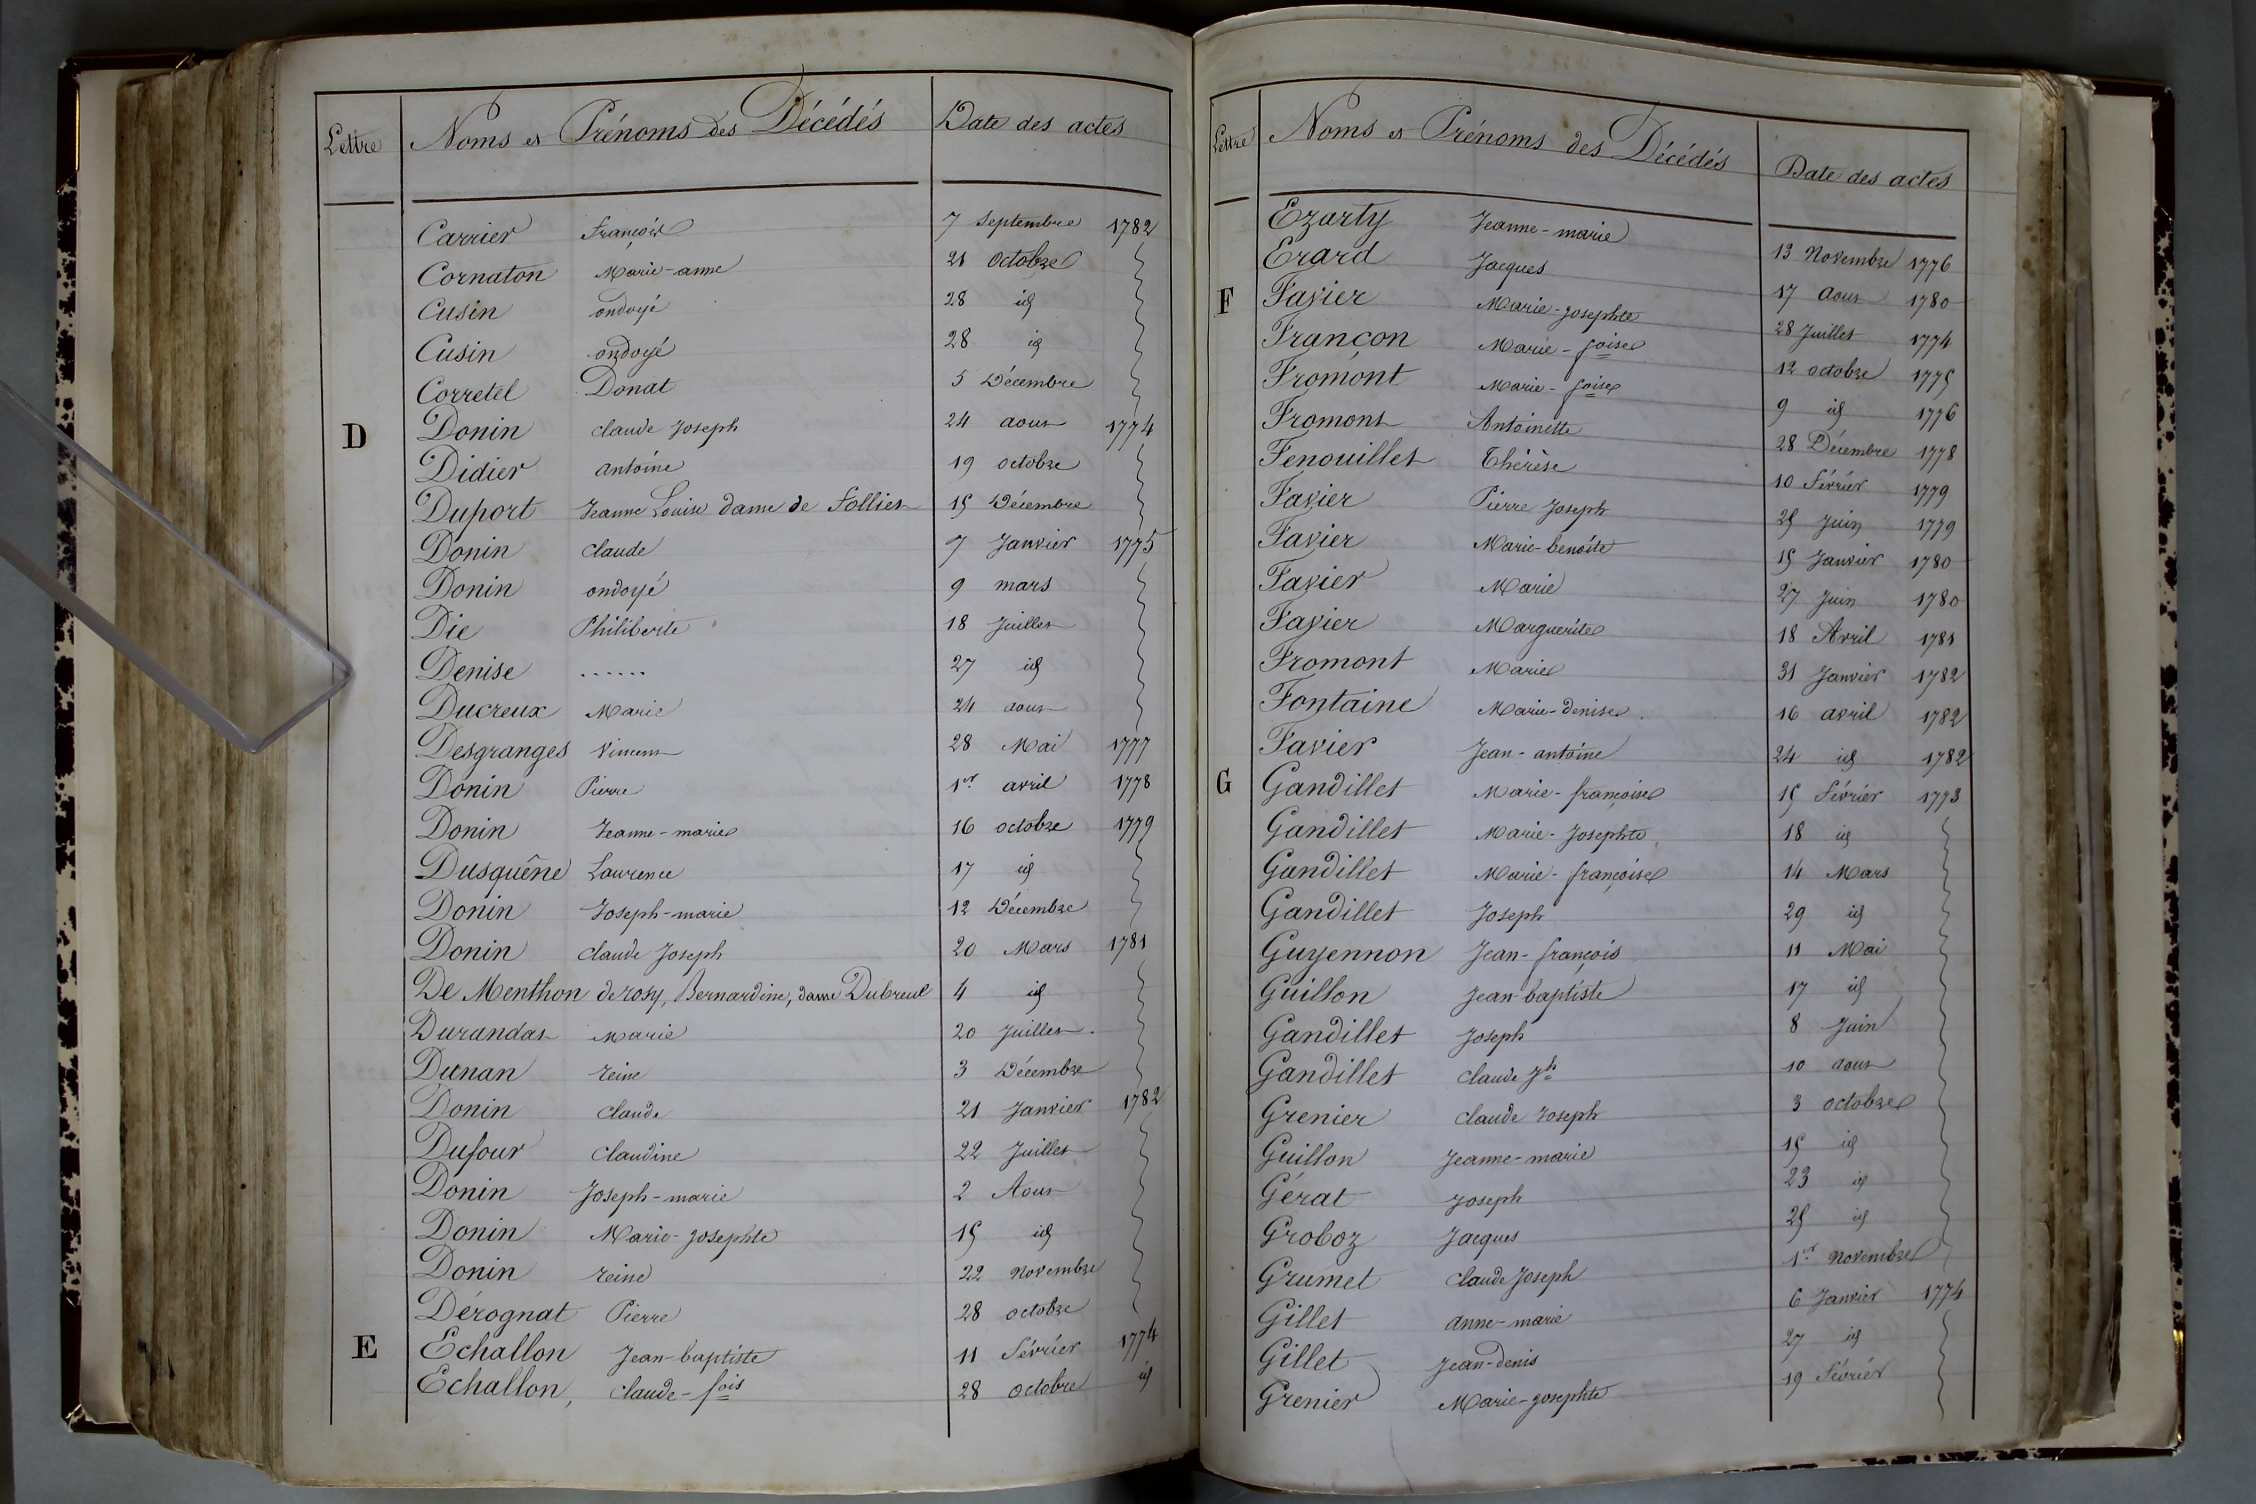 Lettre Noms et Prénoms des Décédés Date des actes
Carrier François 7 Septembre 1782
Cornaton Marie-anne 21 Octobre
Cusin ondoyé 28 id
Cusin ondoyé 28 id
Corretel Donat 5 Décembre
D Donin claude Joseph 24 aout 1774
Didier antoine 19 octobre
Duport Jeanne Louise Dame de Folliet 15 Décembre
Donin claude 7 Janvier 1775
Donin ondoyé 9 mars
Die Philiberte 18 Juillet
Denise ...... 27 id
Ducreux Marie 24 aout
Desgranges Vincent 28 Mai 1777
Donin Pierre 1er avril 1778
Donin Jeanne-marie 16 octobre 1779
Dusquêne Laurence 17 id
Donin Joseph-marie 12 Décembre
Donin claude Joseph 20 Mars 1781
De Menthon de rosy, Bernardine, dame Dubreul 4 id
Durandat Marie 20 Juillet
Dunan reine 3 Décembre
Donin claude 21 Janvier 1782
Dufour claudine 22 Juillet
Donin Joseph-marie 2 Aout
Donin Marie-josephte 15 id
Donin reine 22 novembre
Dérognat Pierre 28 octobre
E Echallon Jean-baptiste 11 Février 1774
Echallon, claude-fois 28 octobre id
Lettre Noms et Prénoms des Décédés Date des actes
Ezarty Jeanne-marie 13 Novembre 1776
Erard Jacques 17 aout 1780
F Favier Marie-josephte 28 Juillet 1774
Françon Marie-foise 12 octobre 1775
Fromont Marie-foise 9 id 1776
Fromont Antoinette 28 Décembre 1778
Fenouillet Thérèse 10 Février 1779
Favier Pierre Joseph 25 Juin 1779
Favier Marie-benoite 15 Janvier 1780
Favier Marie 27 Juin 1780
Favier Marguerite 18 Avril 1781
Fromont Marie 31 Janvier 1782
Fontaine Marie-denise 16 avril 1782
Favier Jean-antoine 24 id 1782
G Gandillet Marie-françoise 15 Février 1773
Gandillet Marie-Josephte 18 id
Gandillet Marie-françoise 14 Mars
Gandillet Joseph 29 id
Guyennon Jean-françois 11 Mai
Guillon Jean-baptiste 17 id
Gandillet Joseph 8 Juin
Gandillet claude Jh 10 aout
Grenier claude Joseph 3 octobre
Guillon Jeanne-marie 15 id
Gérat Joseph 23 id
Groboz Jacques 25 id
Grumet claude Joseph 1er novembre
Gillet anne-marie 6 Janvier 1774
Gillet Jean-denis 27 id
Grenier Marie-josephte 19 Février